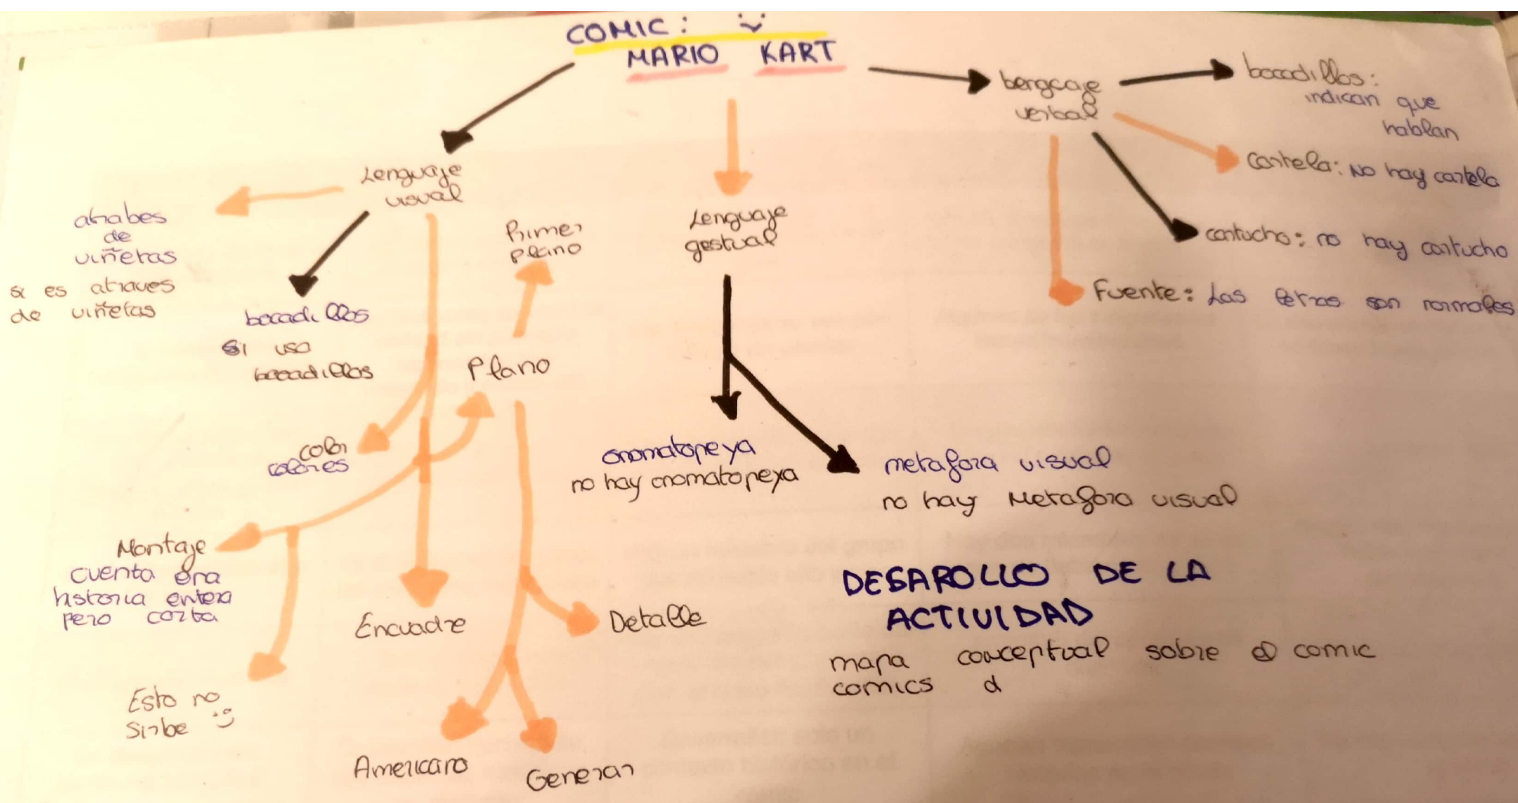 COMIC: :)
MARIO KART
Lenguaje
visual
atrabes
de
viñetas
si es atraves
de viñetas
bocadillos
si uso
bocadillos
color
colores
Plano
Primer
plano
Montaje
cuenta una
historia entera
pero corta
Esto no
Sirbe :)
Encuadre
Detalle
Americano
General
Lenguaje
gestual
onomatopeya
no hay onomatopeya
metafora visual
no hay Metafora visual
Lenguaje
verbal
bocadillos:
indican que
hablan
cartela: No hay cartela
cartucho: no hay cartucho
Fuente: Las letras son normales
DESAROLLO DE LA
ACTIVIDAD
mapa conceptual sobre el comic
comics d